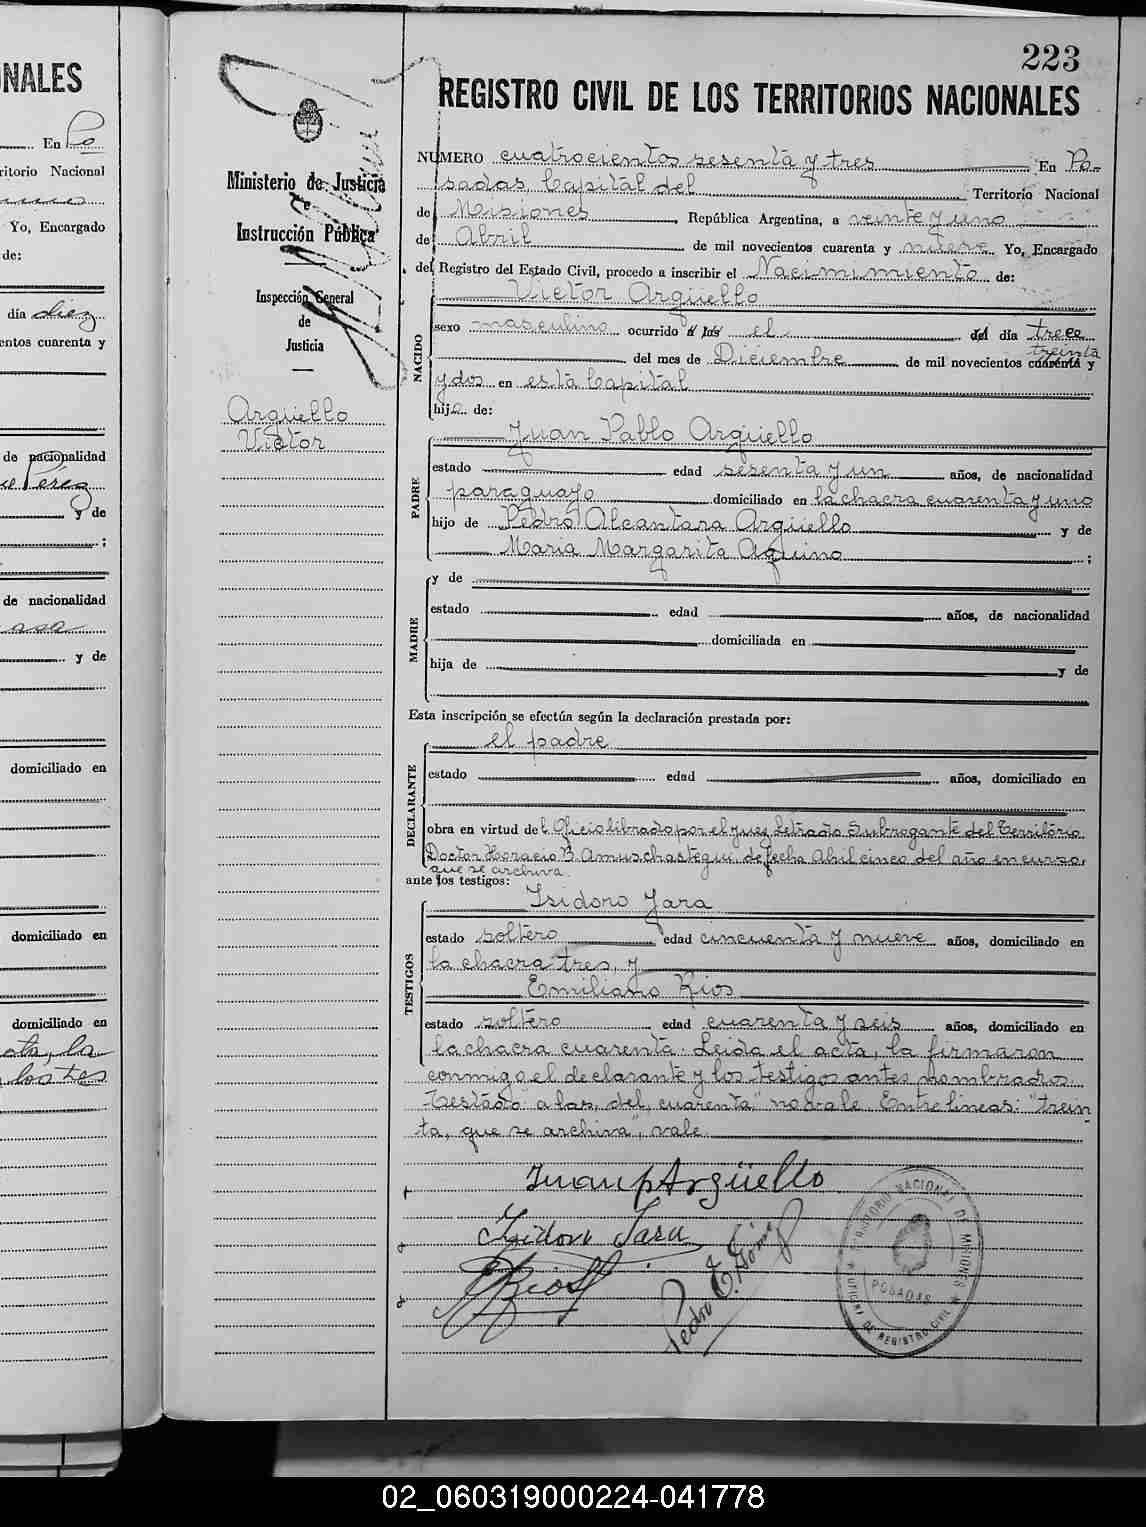 NALES
En Po
ritorio Nacional
Yo, Encargado
de:
día diez
entos cuarenta y
de nacionalidad
Pérez
y de
;
de nacionalidad
asa
y de
domiciliado en
domiciliado en
domiciliado en
la
los tes
223
REGISTRO CIVIL DE LOS TERRITORIOS NACIONALES
Ministerio de Justicia
e
Instrucción Pública
Inspección General
de
Justicia
Argüello
Victor
NUMERO cuatrocientos sesenta y tres En Po-
sadas, Capital del Territorio Nacional
de Misiones, República Argentina, a veinte y uno
de Abril de mil novecientos cuarenta y nueve Yo, Encargado
del Registro del Estado Civil, procedo a inscribir el Nacimimiento de:
NACIDO
Victor Argüello
sexo masculino ocurrido a las el del día trece
treinta
del mes de Diciembre de mil novecientos cuarenta y
y dos en esta Capital
hijo de:
PADRE
Juan Pablo Argüello
estado edad sesenta y un años, de nacionalidad
paraguayo domiciliado en la chacra cuarenta y uno
hijo de Pedro Alcantara Argüello y de
Maria Margarita Aquino ;
MADRE
y de
estado edad años, de nacionalidad
domiciliada en
hija de y de
Esta inscripción se efectúa según la declaración prestada por:
DECLARANTE
el padre
estado edad años, domiciliado en
obra en virtud del Oficio librado por el Juez Letrado Subrogante del Territorio
Doctor Horacio B. Amuschastegui, de fecha Abil cinco del año en curso,
que se archiva.
ante los testigos:
TESTIGOS
Isidoro Jara
estado soltero edad cincuenta y nueve años, domiciliado en
la chacra tres, y
Emiliano Rios
estado soltero edad cuarenta y seis años, domiciliado en
la chacra cuarenta. Leida el acta, la firmaron
conmigo el declarante y los testigos antes nombrados.
Testado: a las, del, cuarenta" no vale. Entre lineas: "trein
ta, que se archiva", vale.
Juan p Argüello
Isidoro Jara
ERios
Pedro E. Gómez
TERRITORIO NACIONAL DE MISIONES
POSADAS
OFICINA DE REGISTRO CIVIL
02_060319000224-041778